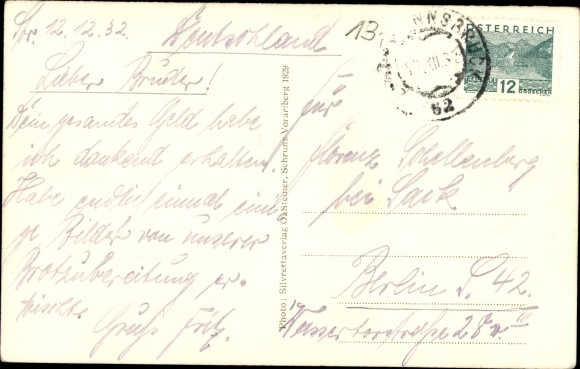 12.12.32.
Deutschland
Lieber Bruder!
Dein gesamtes Geld habe
ich dankend erhalten.
Habe endlich einmal eini-
ge Bilder von unserer
Brotzubereitung er-
wischt.
Gruß Fritz.
Photo: Silvrettaverlag O. Steiner, Schruns Vorarlberg 1929
13
INNSBRUCK
62
ÖSTERREICH
12
GROSCHEN
Für
Florenz Schellenberg
bei Sack
Berlin S. 42.
Wassertorstraße 28